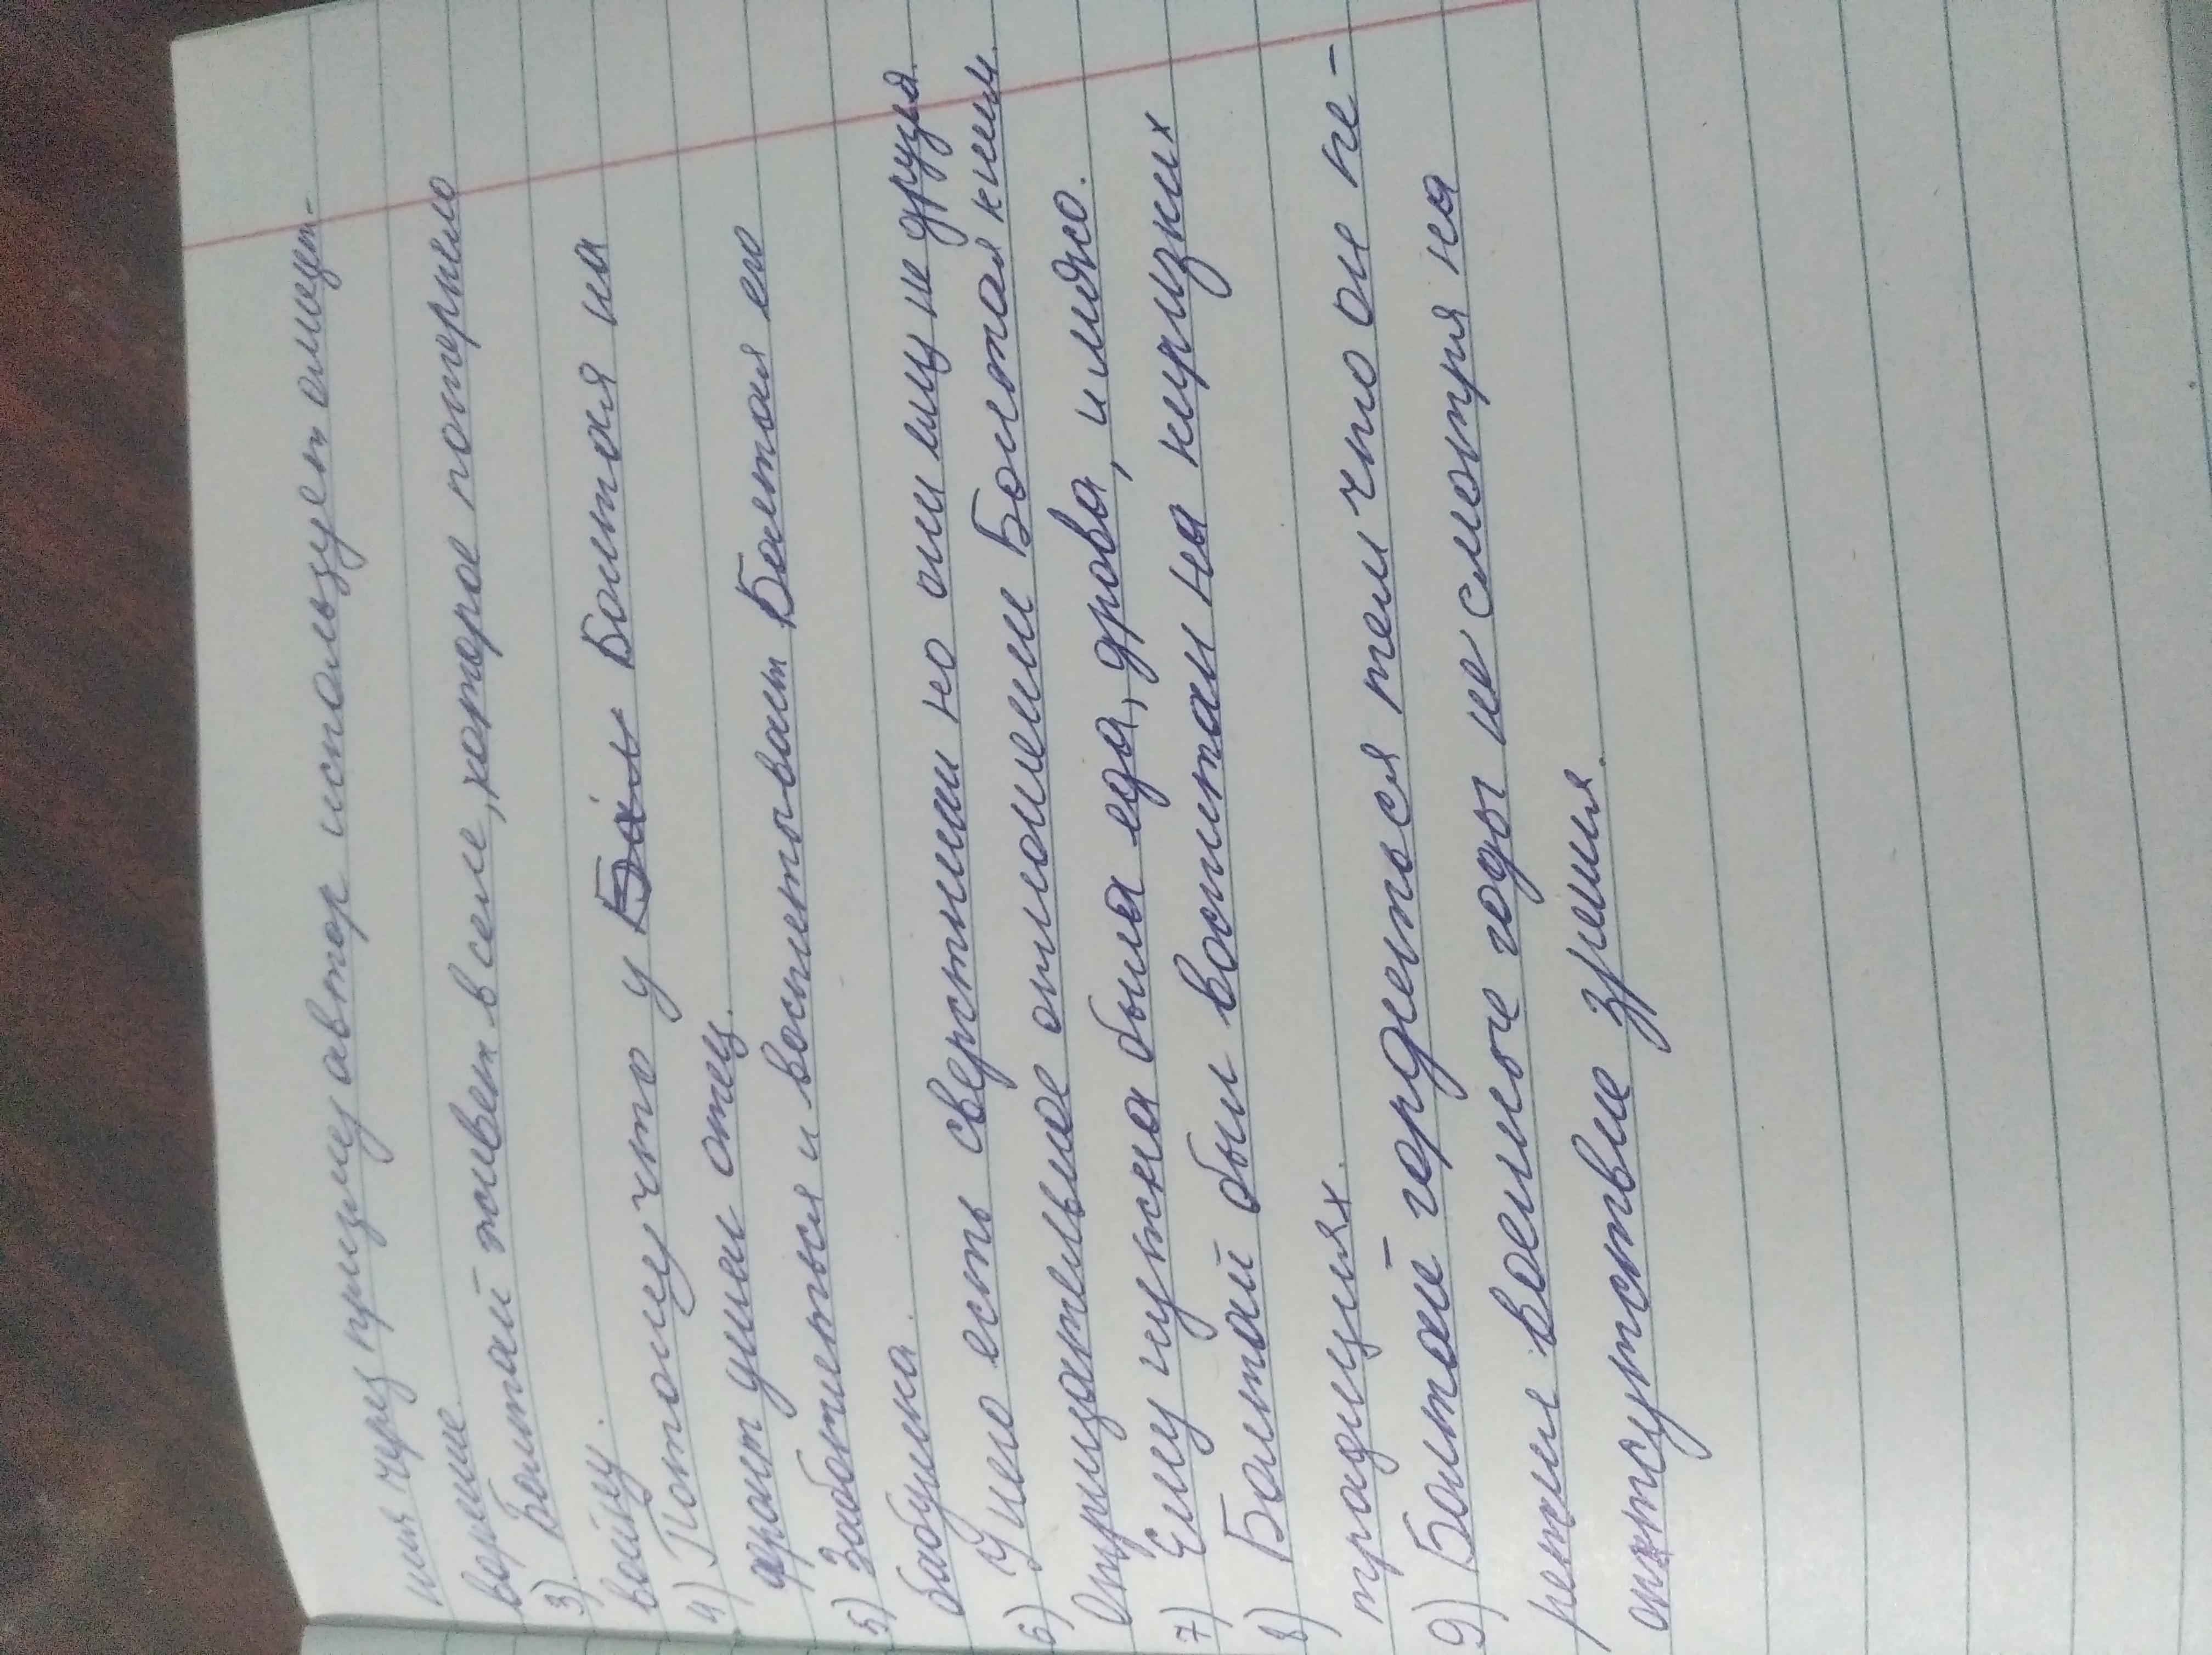 ния через призму автор использует олицет-
ворение.
3) Болтай живет в селе, которое потеряло
войну.
4) Потому что у Болтая на
фронт ушел отец.
5) Заботиться и воспитывает Болтая его
бабушка.
У него есть сверстники но они ему не друзья.
6) Отрицательное отношение Болтая к ним.
7) Ему нужна была еда, дрова, и мясо.
8) Болтай был воспитан на киргизких
традициях.
9) Болтай гордиться тем что он пе-
режил военные годы не смотря на
отсутствие зрения.